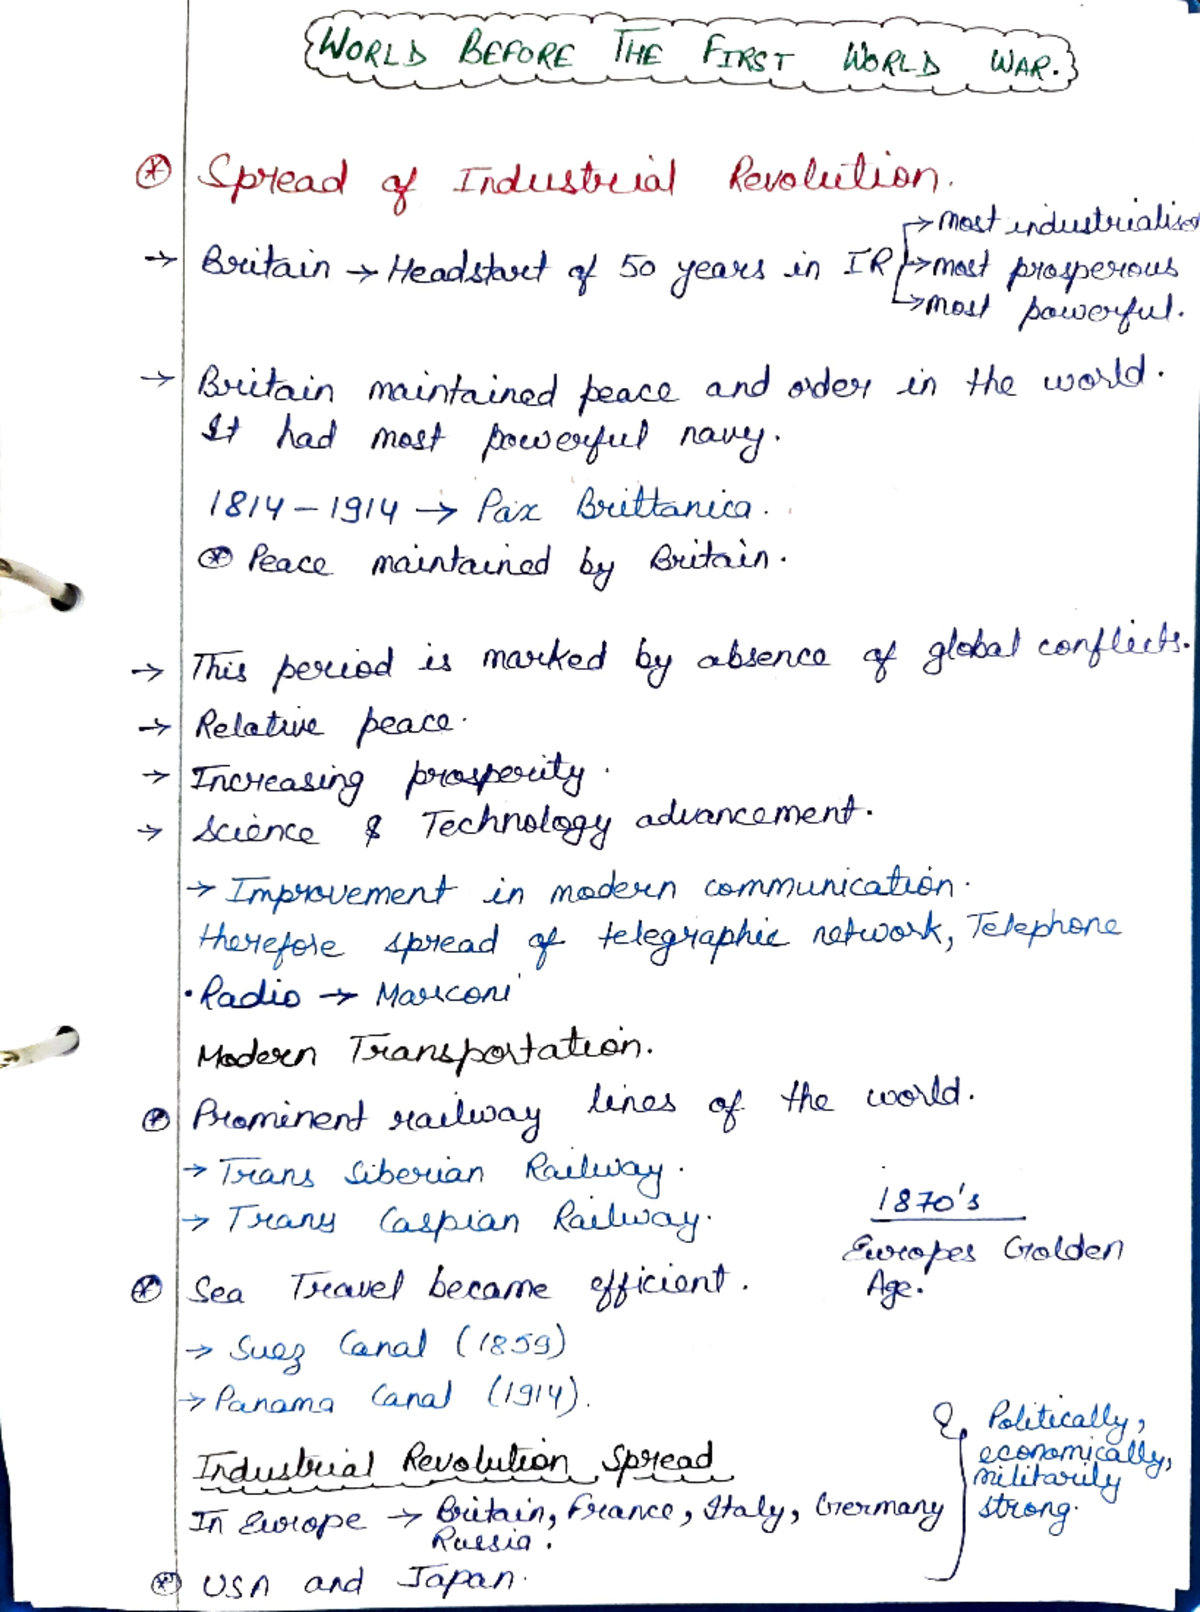 WORLD BEFORE THE FIRST WORLD WAR.
Spread of Industrial Revolution.
→ Britain → Headstart of 50 years in IR
→ most industrialised
→ most prosperous
→ most powerful.
→ Britain maintained peace and order in the world.
It had most powerful navy.
1814 – 1914 → Pax Brittanica.
Peace maintained by Britain.
→ This period is marked by absence of global conflicts.
→ Relative peace.
→ Increasing prosperity.
→ Science & Technology advancement.
→ Improvement in modern communication.
therefore spread of telegraphic network, Telephone
• Radio → Marconi
Modern Transportation.
Prominent railway lines of the world.
→ Trans Siberian Railway.
→ Trans Caspian Railway.
1870's
Europes Golden
Age.
Sea Travel became efficient.
→ Suez Canal (1859)
→ Panama Canal (1914).
Industrial Revolution Spread
In Europe → Britain, France, Italy, Germany
Russia.
USA and Japan.
Politically,
economically,
militarily
strong.